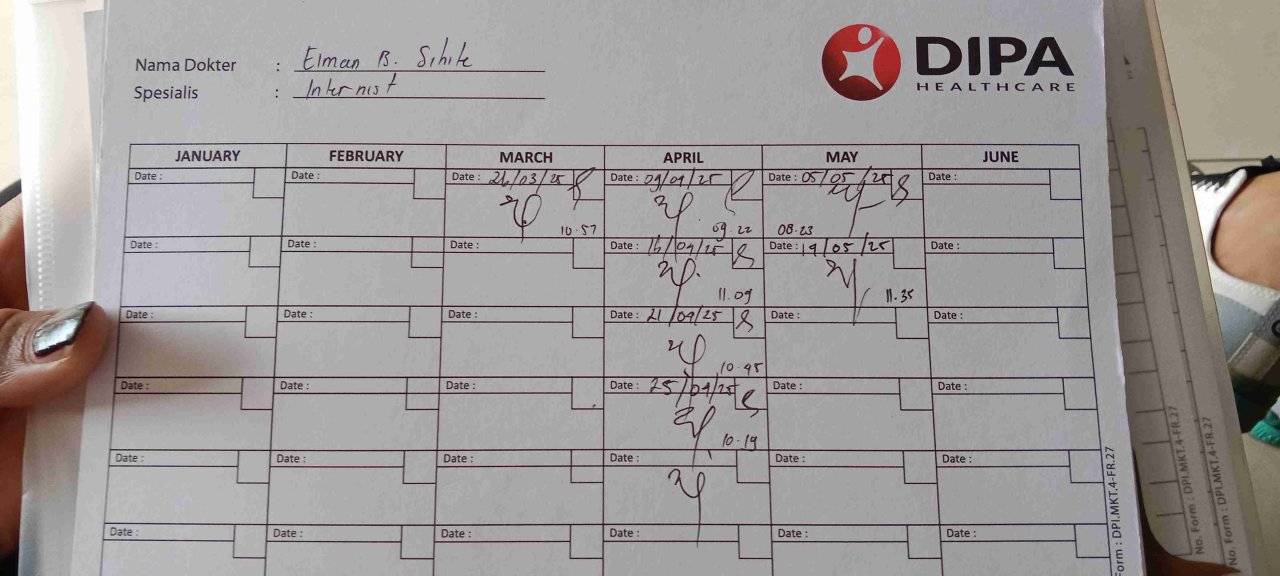 DIPA
HEALTHCARE
Nama Dokter : Elman B. Sihite
Spesialis : Internist
JANUARY FEBRUARY MARCH APRIL MAY JUNE
Date : Date : Date : 26/03/25 Date : 09/04/25 Date : 05/05/25 Date :
10.57 09.22 08.23
Date : Date : Date : Date : 16/04/25 Date : 19/05/25 Date :
11.09 11.35
Date : Date : Date : Date : 21/04/25 Date : Date :
10.45
Date : Date : Date : Date : 25/04/25 Date : Date :
10.19
Date : Date : Date : Date : Date : Date :
Date : Date : Date : Date : Date : Date :
Form : DPI.MKT.4-FR.27
No. Form : DPI.MKT.4-FR.27
No. Form : DPI.MKT.4-FR.27